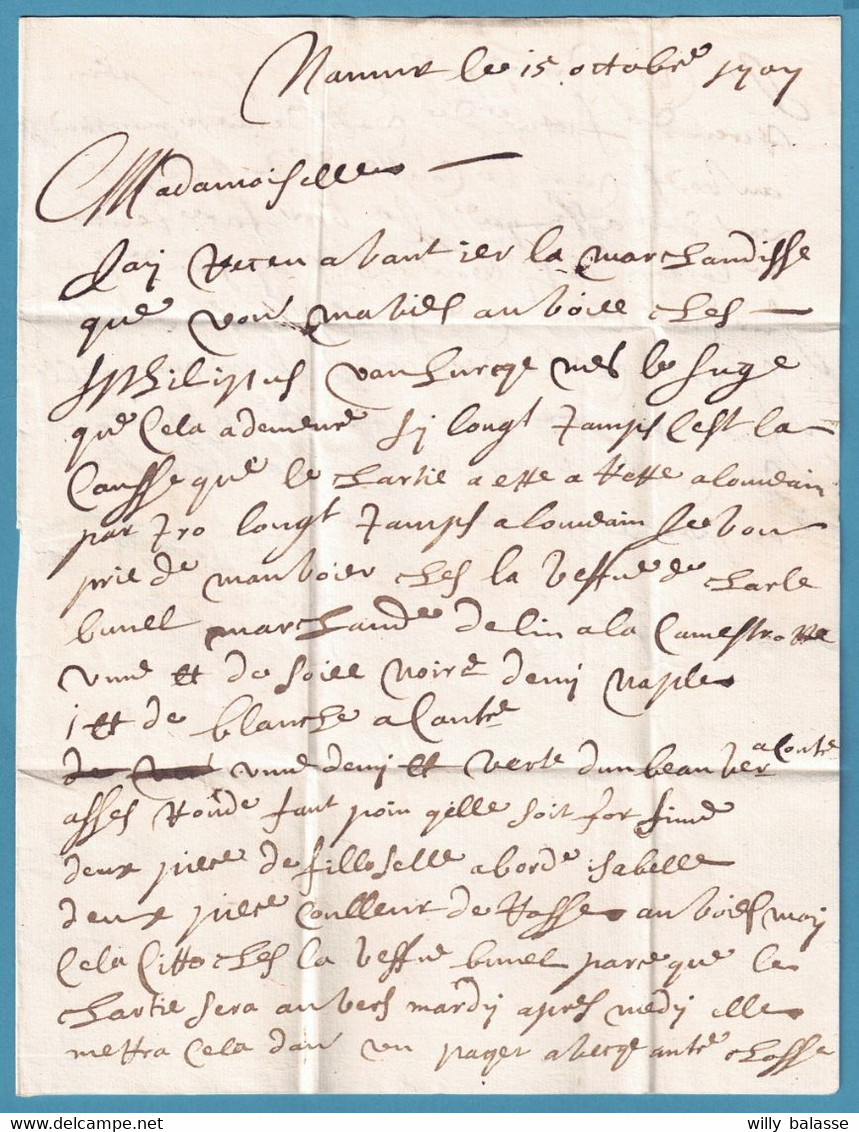 Namur le 15 octobre 1707
Madamoiselle
Jay Receu avant ier la marchandisse
que vou mavies anvoiee ches
philipus van hurcqe mes le suge
que Cela a demeure sy longt tamps Cest la
Causse que le chartie a este a Reste a louvain
par tro longt tamps a louvain Je vou
prie de manvoier ches la veffue de charle
bunel marchande de lin a la Camestrate
une tt de soiee noire demy naple
1 tt de blanche a Cantre
une demy tt verte dun beau ver a Contre
asses Ronde faut poin qelle soit for fine
deux piece de filloselle a borde isabelle
deux piece Coulleur de Rosse anvoies moy
Cela Citto ches la veffue bunel parce que le
chartie sera anvers mardy apres medy elle
mettra Cela dan un paqet avecqe autre chosse
willy balasse